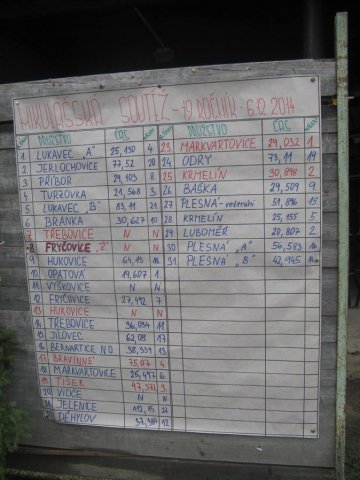 MIKULÁŠSKÁ SOUTĚŽ - 19 ROČNÍK - 6.12.2014
MUŽSTVO ČAS MUŽSTVO ČAS
1 LUKAVEC "A" 25,150 4 23 MARKVARTOVICE 29,032 1
2 JERLOCHOVICE 77,52 20 24 ODRY 73,11 19
3 PŘÍBOR 29,493 8 25 KRMELÍN 30,898 2
4 TURZOVKA 21,568 3 26 BAŠKA 29,509 9
5 LUKAVEC "B" 83,11 21 27 PLESNÁ - veteráni 51,896 15
6 BRÁNKA 30,627 10 28 KRMELÍN 25,155 5
7 TŘEBOVICE N N 29 LUBOMĚŘ 20,807 2
8 FRYČOVICE "Ž" N N 30 PLESNÁ "A" 56,583
9 HUKOVICE 64,13 18 31 PLESNÁ "B" 42,945
10 OPATOVÁ 19,607 1
11 VÝŠKOVICE N N
12 FRÝČOVICE 27,412 7
13 HUKOVICE N N
14 TŘEBOVICE 36,034 11
15 JÍLOVEC 62,08 17
16 BERNARTICE N.O. 38,339 13
17 BRAVINNÉ 75,07 4
18 MARKVARTOVICE 26,497 6
19 TÍSEK 47,371 3
20 VIDČE N N
21 JELENICE 112,15 22
22 DĚHYLOV 37,309 12